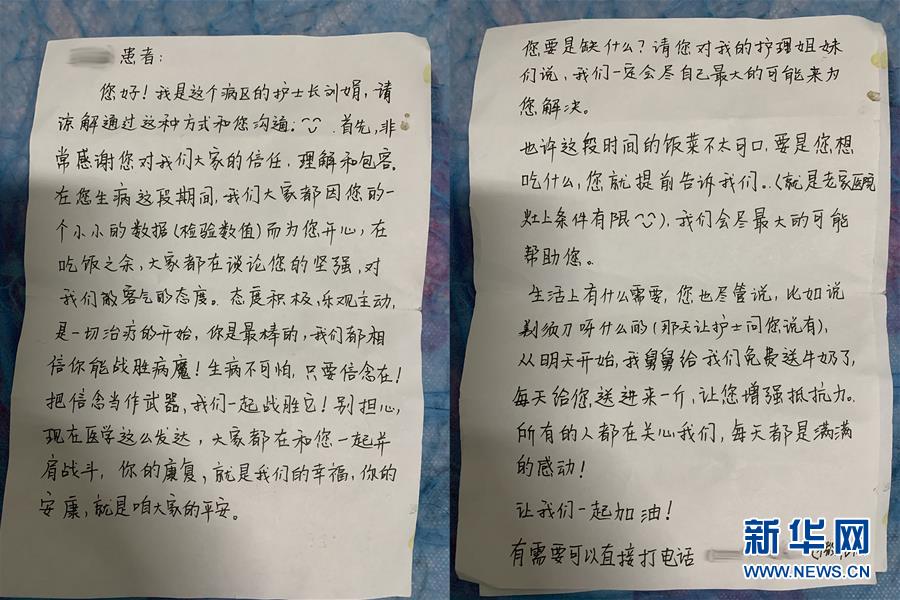 患者:
您好!我是这个病区的护士长刘娟,请
谅解通过这种方式和您沟通。首先,非
常感谢您对我们大家的信任、理解和包容。
在您生病这段期间,我们大家都因您的一
个小小的数据(检验数值)而为您开心,在
吃饭之余,大家都在谈论您的坚强,对
我们的客气的态度。态度积极,乐观主动,
是一切治疗的开始,你是最棒的,我们都相
信你能战胜病魔!生病不可怕,只要信念在!
把信念当作武器,我们一起战胜它!别担心,
现在医学这么发达,大家都在和您一起并
肩战斗,你的康复、就是我们的幸福,你的
安康,就是咱大家的平安。
您要是缺什么?请您对我的护理姐妹
们说,我们一定会尽自己最大的可能来为
您解决。
也许这段时间的饭菜不太可口,要是您想
吃什么,您就提前告诉我们。(就是老家医院
灶上条件有限),我们会尽最大的可能
帮助您。
生活上有什么需要,您也尽管说,比如说
剃须刀呀什么的(那天让护士问您说有),
从明天开始,我舅舅给我们免费送牛奶了,
每天给您送进来一斤,让您增强抵抗力。
所有的人都在关心我们,每天都是满满
的感动!
让我们一起加油!
有需要可以直接打电话
新华网
WWW.NEWS.CN